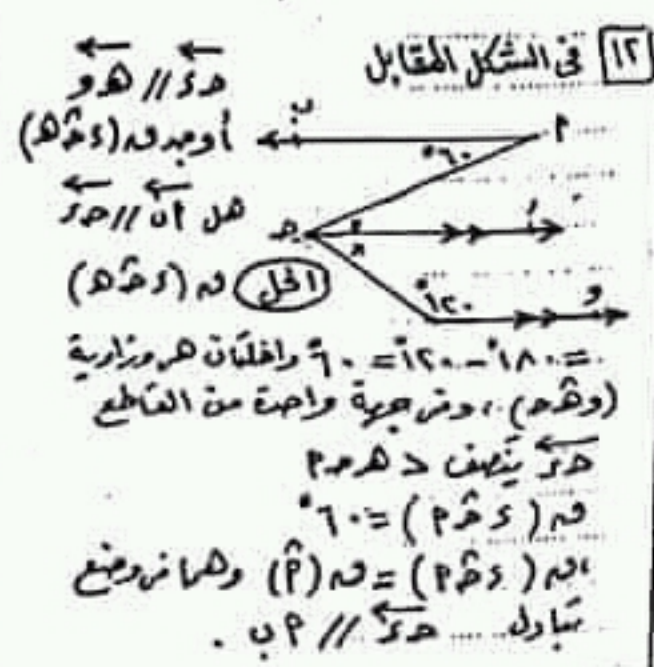 ١٢ فى الشكل المقابل
حء // هو
أوجد ق(ءحه)
هل أب // حء
ب
أ
٦٠°
ح
ء
١٢٠°
و
الحل ق(ءحه)
= ١٨٠° - ١٢٠° = ٦٠° داخلتان هى وزاوية
(وهح) ، وفى جهة واحدة من القاطع
حء ينصف > هحأ
ق(ءحأ) = ٦٠°
،ق(ءحأ) = ق(أ) وهما فى وضع
تبادل حء // أب .